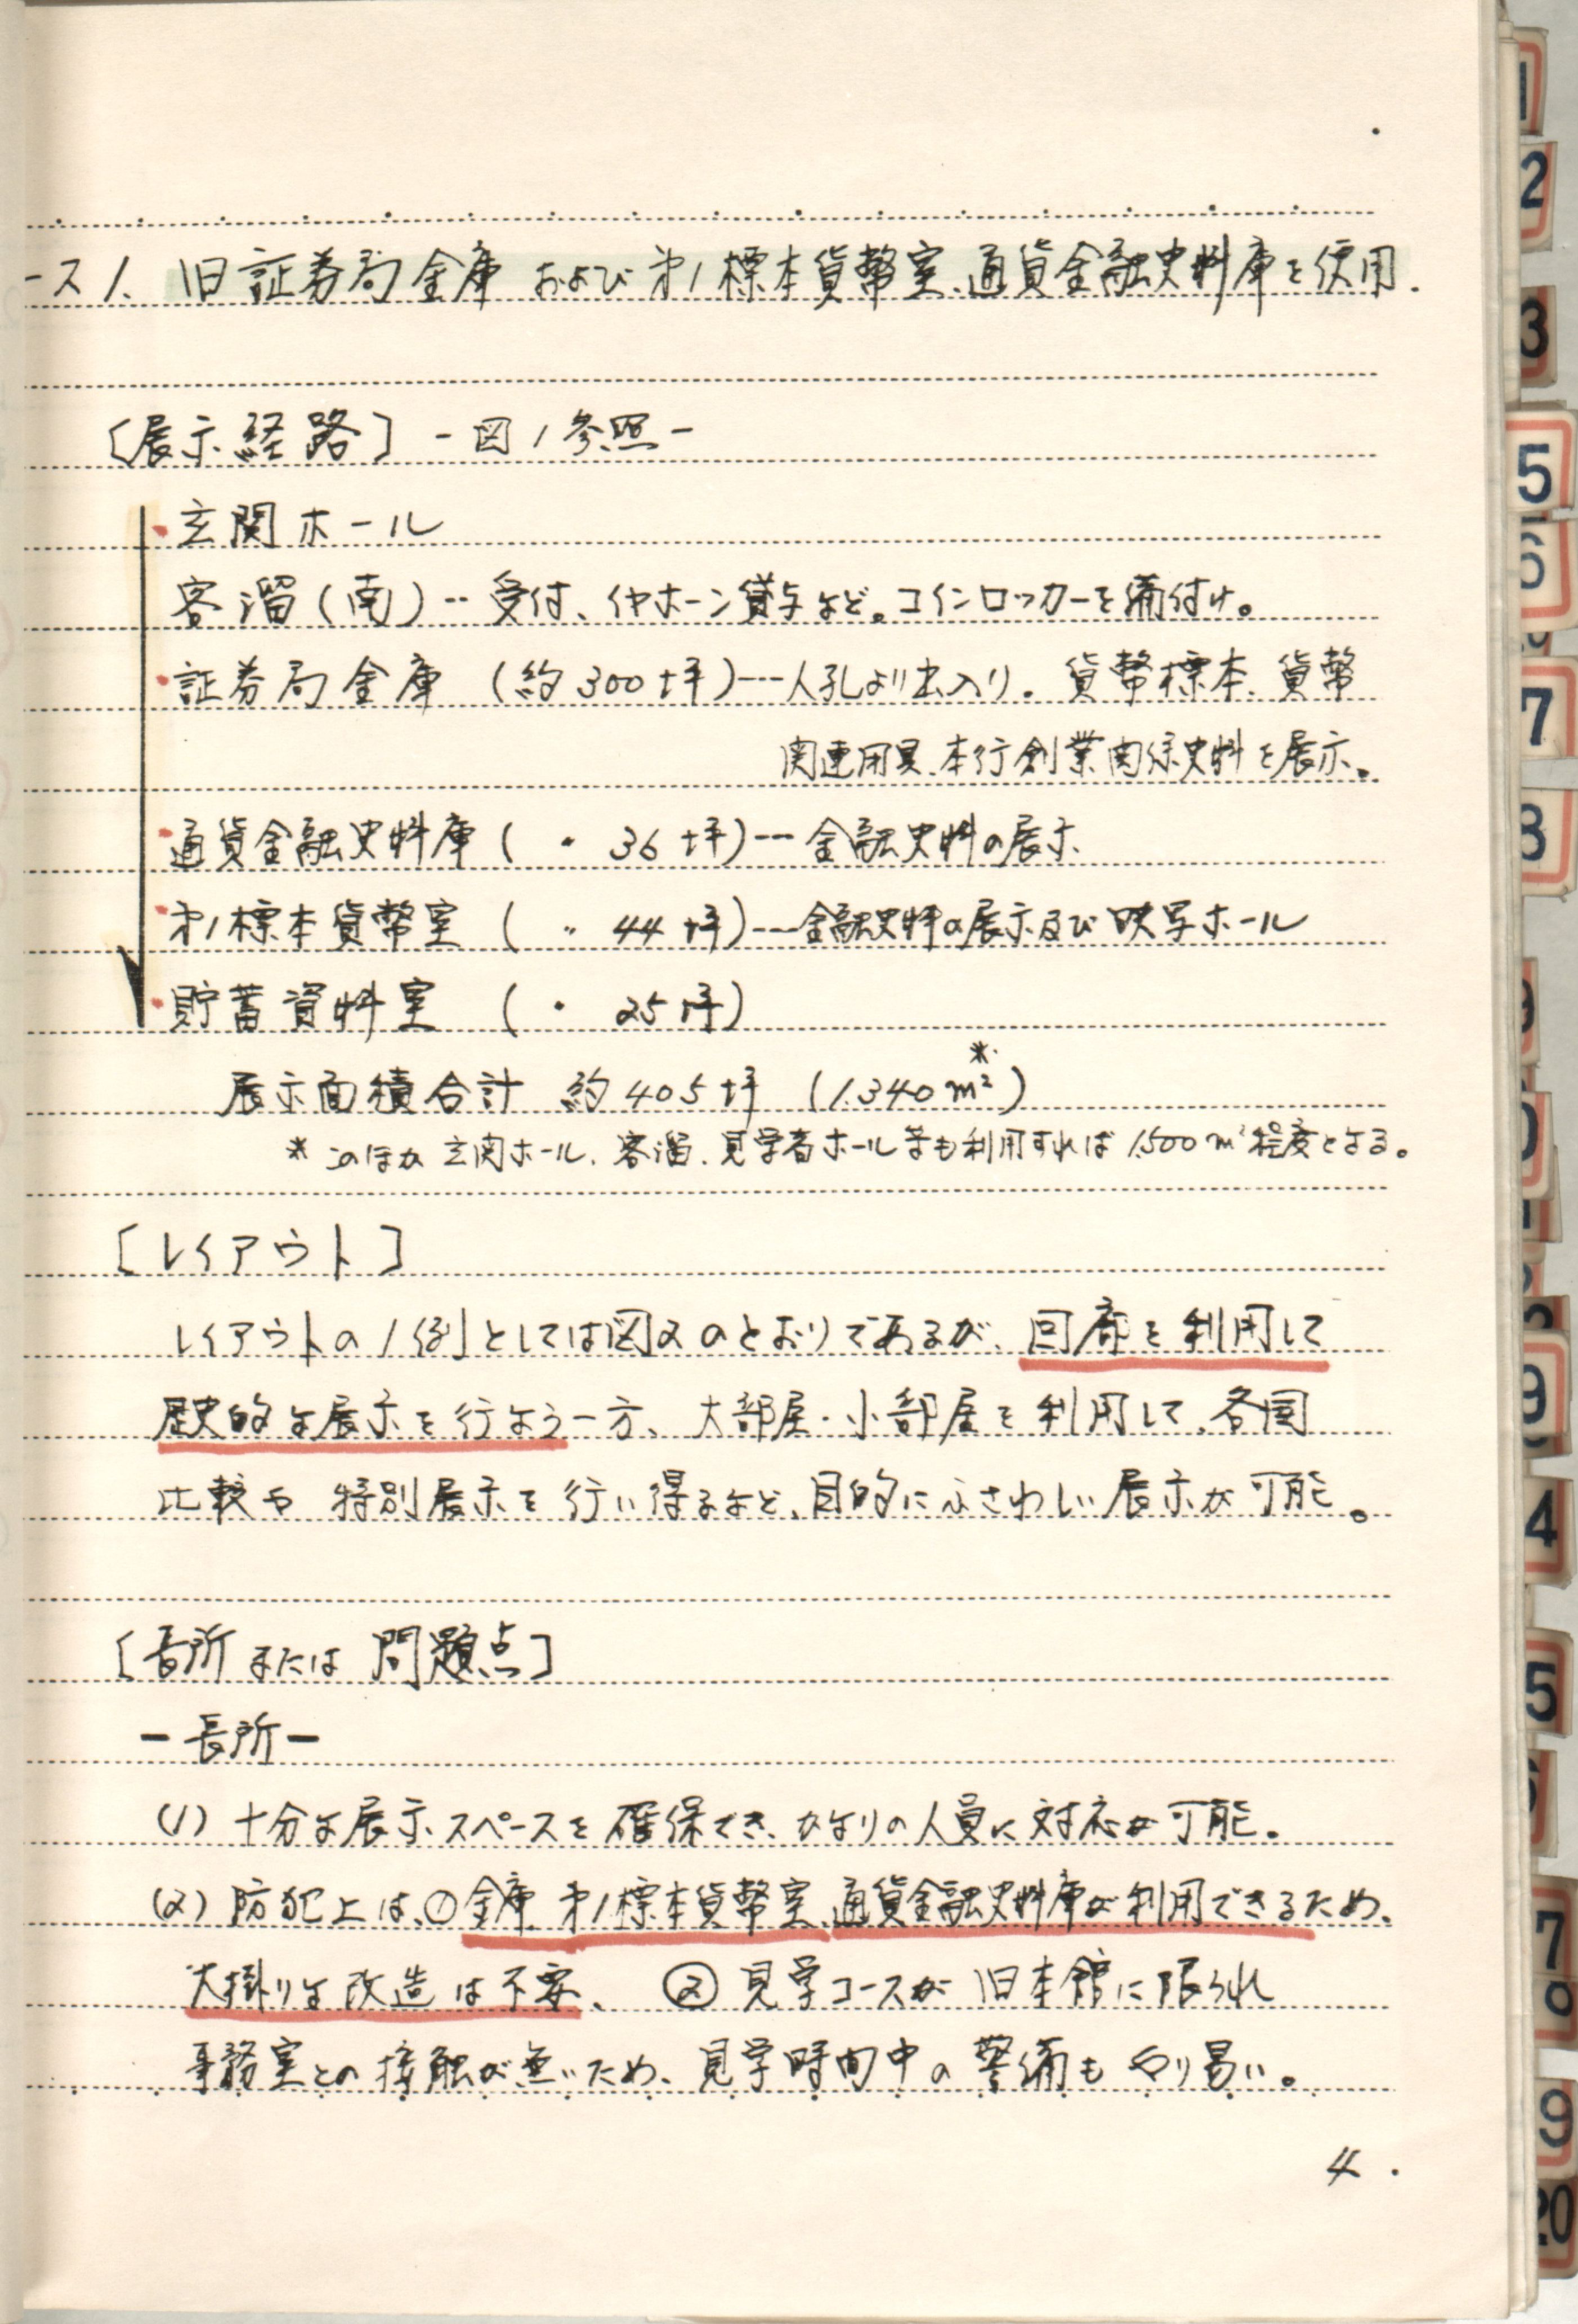 ース1. 旧証券局金庫 および 第1標本貨幣室、通貨金融史料庫を使用.
〔展示経路〕 -図1参照-
・玄関ホール
客溜(南)‥受付、イヤホーン貸与など。コインロッカーを備付け。
・証券局金庫 (約300坪)---人孔より出入り。貨幣標本、貨幣
関連用具、本行創業関係史料を展示。
・通貨金融史料庫 ( 〃 36坪)---金融史料の展示
・第1標本貨幣室 ( 〃 44坪)---金融史料の展示及び映写ホール
・貯蓄資料室 ( 〃 25坪)
展示面積合計 約405坪 (1.340m²)*
* このほか 玄関ホール、客溜、見学者ホール等も利用すれば 1.500m²程度となる。
[レイアウト]
レイアウトの1例としては図2のとおりであるが、回廊を利用して
歴史的な展示を行なう一方、大部屋・小部屋を利用して、各国
比較や 特別展示を行い得るなど、目的にふさわしい展示が可能。
[長所または問題点]
-長所-
(1) 十分な展示スペースを確保でき、かなりの人員に対応が可能。
(2) 防犯上は、①金庫、第1標本貨幣室、通貨金融史料庫が利用できるため、
大掛りな改造は不要、 ②見学コースが 旧本館に限られ
事務室との接触が無いため、見学時間中の警備もやり易い。
4.
1
2
3
5
6
7
8
9
0
9
4
5
7
8
19
20